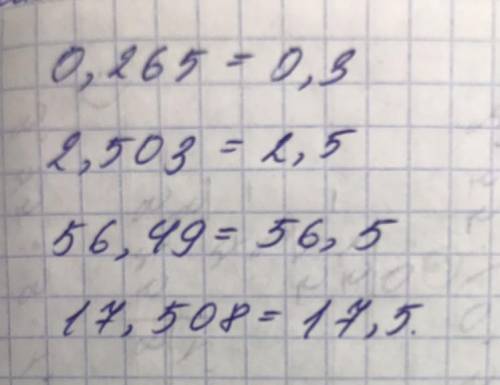 0,265 = 0,3
2,503 = 2,5
56,49 = 56,5
17,508 = 17,5.